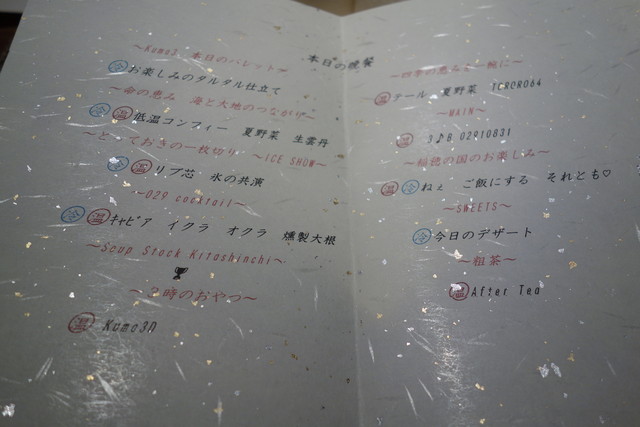 本日の晩餐
～Kumo3 本日のパレット～
冷 お楽しみのタルタル仕立て
～命の恵み 海と大地のつながり～
冷 温 低温コンフィー 夏野菜 生雲丹
～とっておきの一枚切り ～ICE SHOW～
冷 温 リブ芯 氷の共演
～029 cocktail～
冷 温 キャビア イクラ オクラ 燻製大根
～Soup Stock Kitashinchi～
～3時のおやつ～
温 Kumo3A
～四季の恵みを一椀に～
温 テール 夏野菜
～MAIN～
温 3♪8 02910831
の国のお楽しみ～
温 冷 ねぇ ご飯にする それとも♡
～SWEETS～
冷 今日のデザート
～粗茶～
温 After Tea